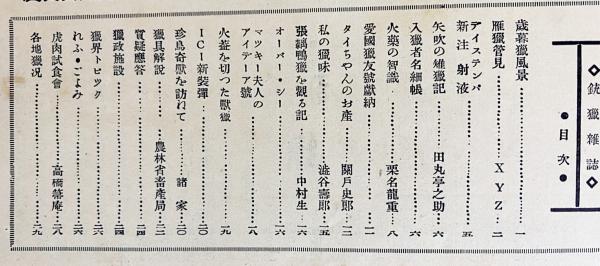 ◇銃獵雜誌◇
●目次●
歳暮獵風景……一
雁獵管見……XYZ…二
デイステンパ
新注射液……五
矢吹の雉獵記……田丸亭之助…六
入獵者名細帳……六
火藥の智識……栗名龍重…八
愛國獵友號獻納……二一
タイちやんのお產……關戶史郎…三
私の獵味……澁谷壽郎…五
張鷸鴨獵を觀る記……中村生…一六
オーバー・シー……一六
マツキー夫人の
アイデーア號……一八
火蓋を切つた獸獵……一九
ICI新裝彈……二〇
珍鳥奇獸を訪ねて……諸家…二〇
獵具解說……農林省畜產局…二三
質疑應答……二四
獵政施設……二四
獵界トピツク……二六
れふ・ごよみ……二六
虎肉試食會……高橋箒庵…二八
各地獵況……二九